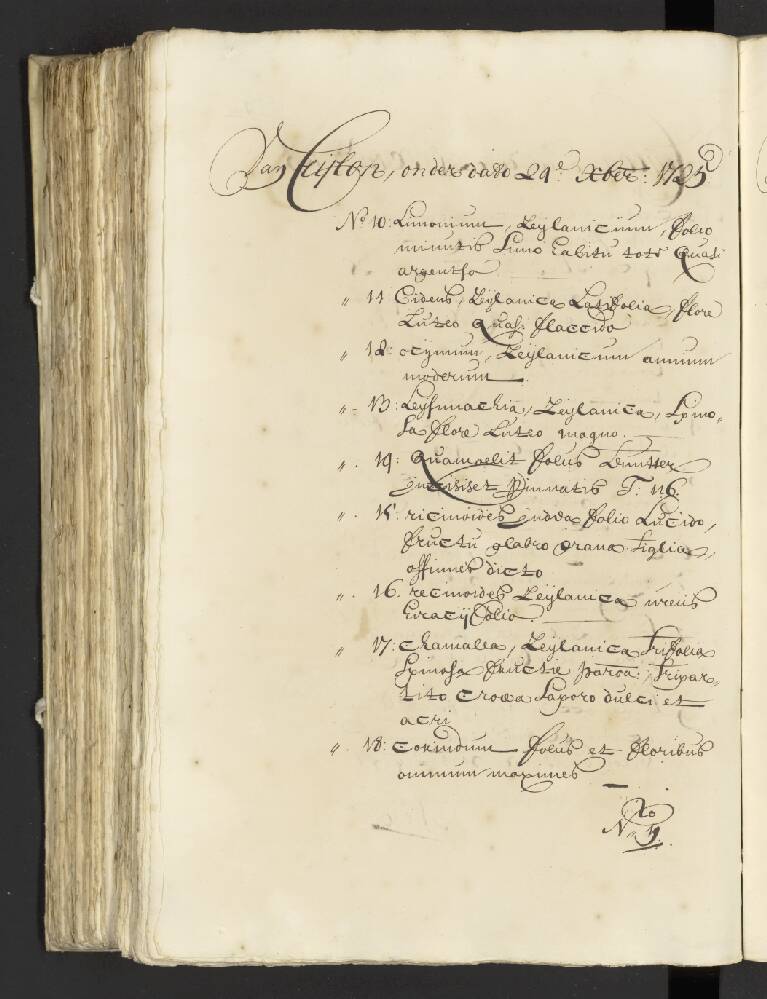 Van Ceijlon, onder dato 29e. Xber: 1725
No. 10: Limonium, Zeylanicum, folio
minutis Limo habitu toto quasi
argentha
" 11 Bidens, Zeylanica Latifolia, flore
Luteo quasi flaccido
" 12: ocymum, Zeylanicum annum
moderum
" 13: Leysimachia, Zeylanica, Spino-
sa flore Luteo magno.
" 14: Quamoclit folus
et pinnatis T: 116.
" 15: ricinoides folio Lucido,
fructu glabro grana tiglia
offinnis dicto
" 16. recinoides Zeylanica
folio.
" 17: Chamalea, Zeylanica trifolia
Spinosa fructie parva, tripar-
tito crocea Saporo dulci et
acri
" 18: folus et floribus
omnium maximes
No